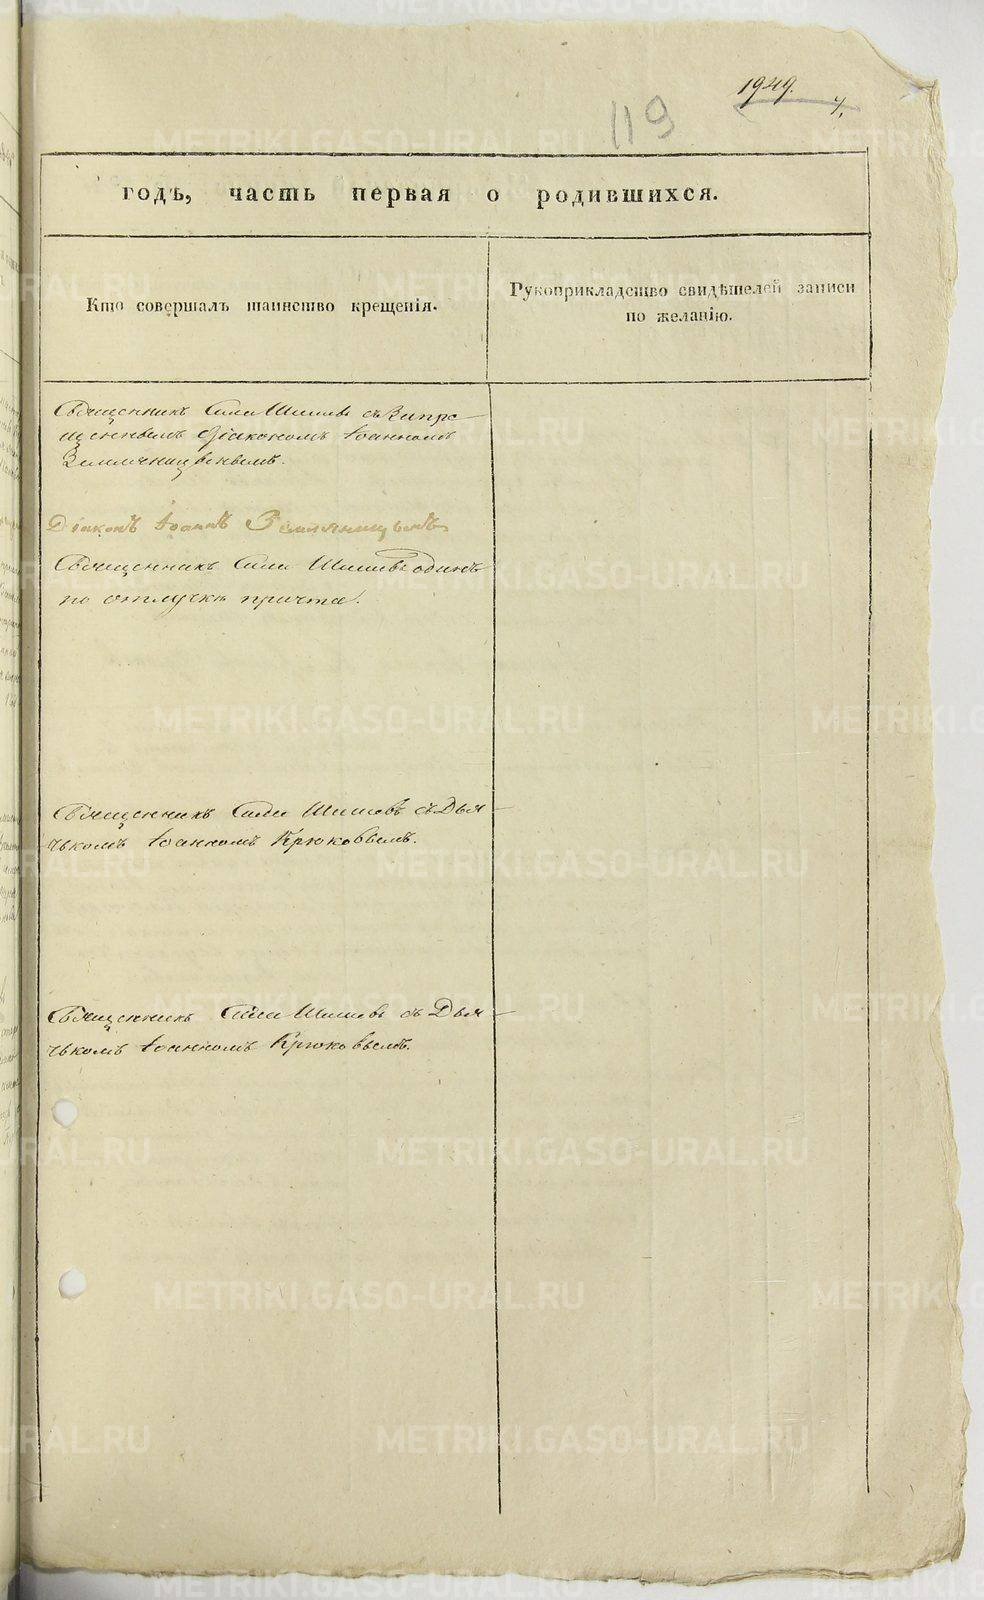 1949.
4.
119
годъ, часть первая о родившихся.
Кто совершалъ таинство крещенія.
Рукоприкладство свидѣтелей записи
по желанію.
Священникъ Сила Шишевъ съ Запре
щеннымъ Діакономъ Іоанномъ
Земляницынымъ.
Діаконъ Іоаннъ Земляницынъ
Священникъ Сила Шишевъ одинъ
по отлучкѣ причта.
Священникъ Сила Шишевъ съ Дья
чькомъ Іоанномъ Крюковымъ.
Священникъ Сила Шишевъ съ Дья
чькомъ Іоанномъ Крюковымъ.
METRIKI.GASO-URAL.RU